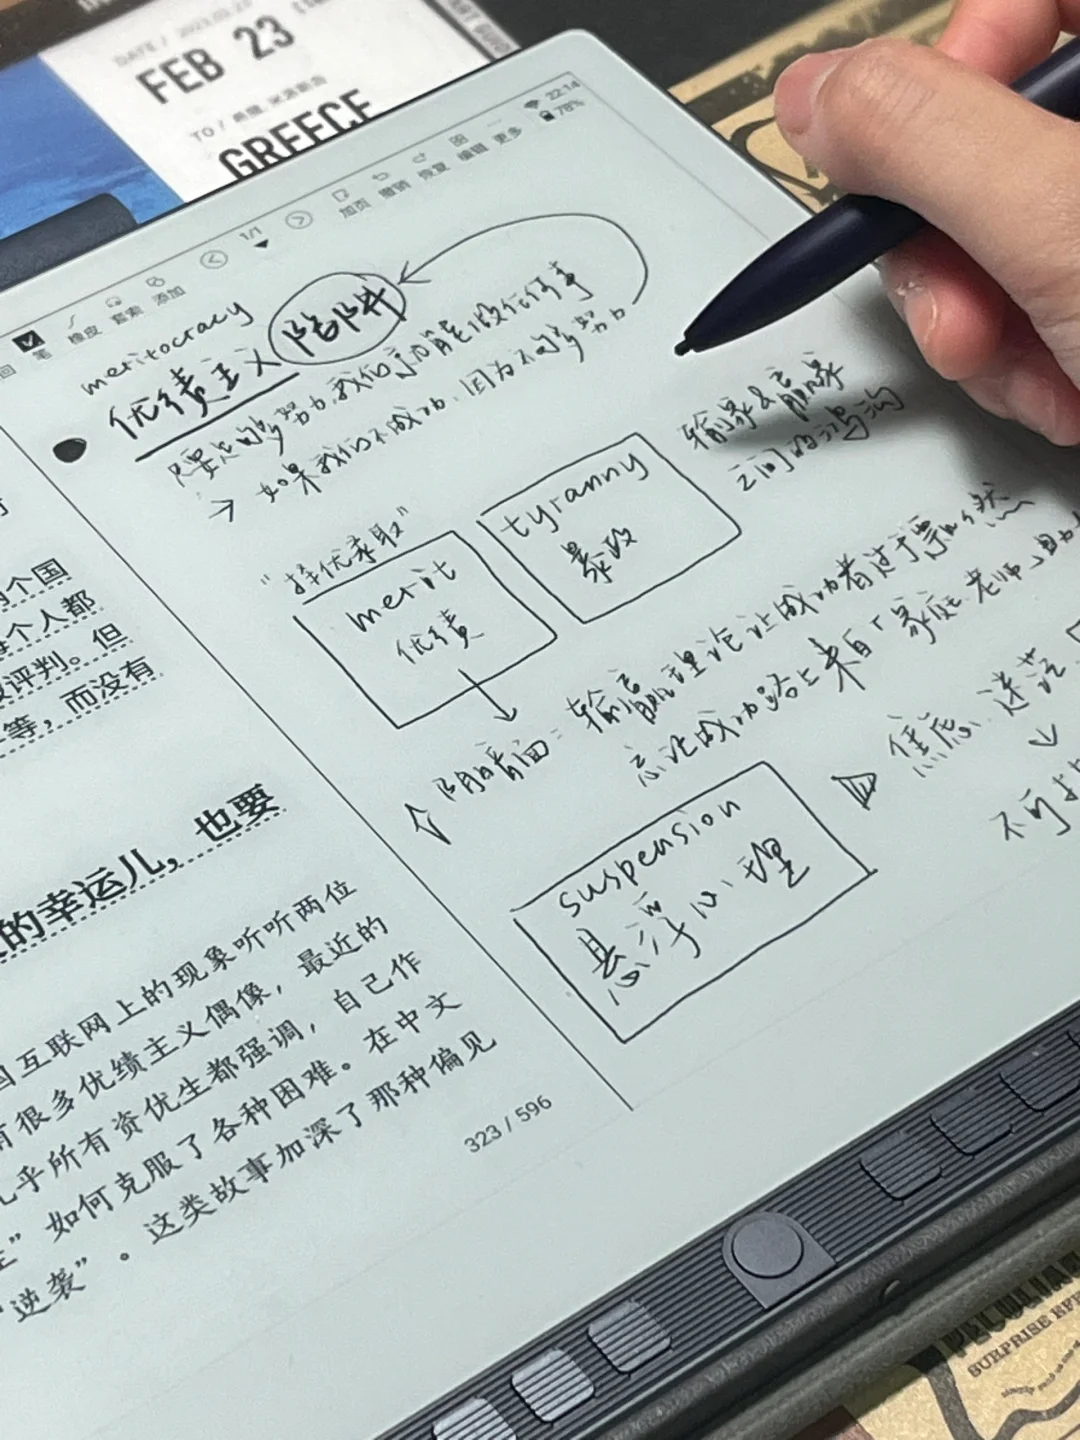 DATE / 2023.02.23
FEB 23
TO / 希腊, 米洛斯岛
GREECE
22:14
78%
1/1
加页 撤销 恢复 编辑 更多
笔 橡皮 套索 添加
meritocracy
优绩主义 陷阱
要足够努力,我们 能做任何事
→ 如果我们不成功,因为不够努力
输家&赢家
之间的鸿沟
"择优录取"
merit
优绩
tyranny
暴政
阴暗面:输赢理论让成功者过于
忘记成功路上来自「家庭、老师、
焦虑、迷茫
不可
suspension
悬浮心理
个国
每个人都
评判。但
等,而没有
的幸运儿,也要
互联网上的现象听听两位
有很多优绩主义偶像,最近的
几乎所有资优生都强调,自己作
”如何克服了各种困难。在中文
“逆袭”。这类故事加深了那种偏见
323 / 596
PECULIAR
SURPRISE